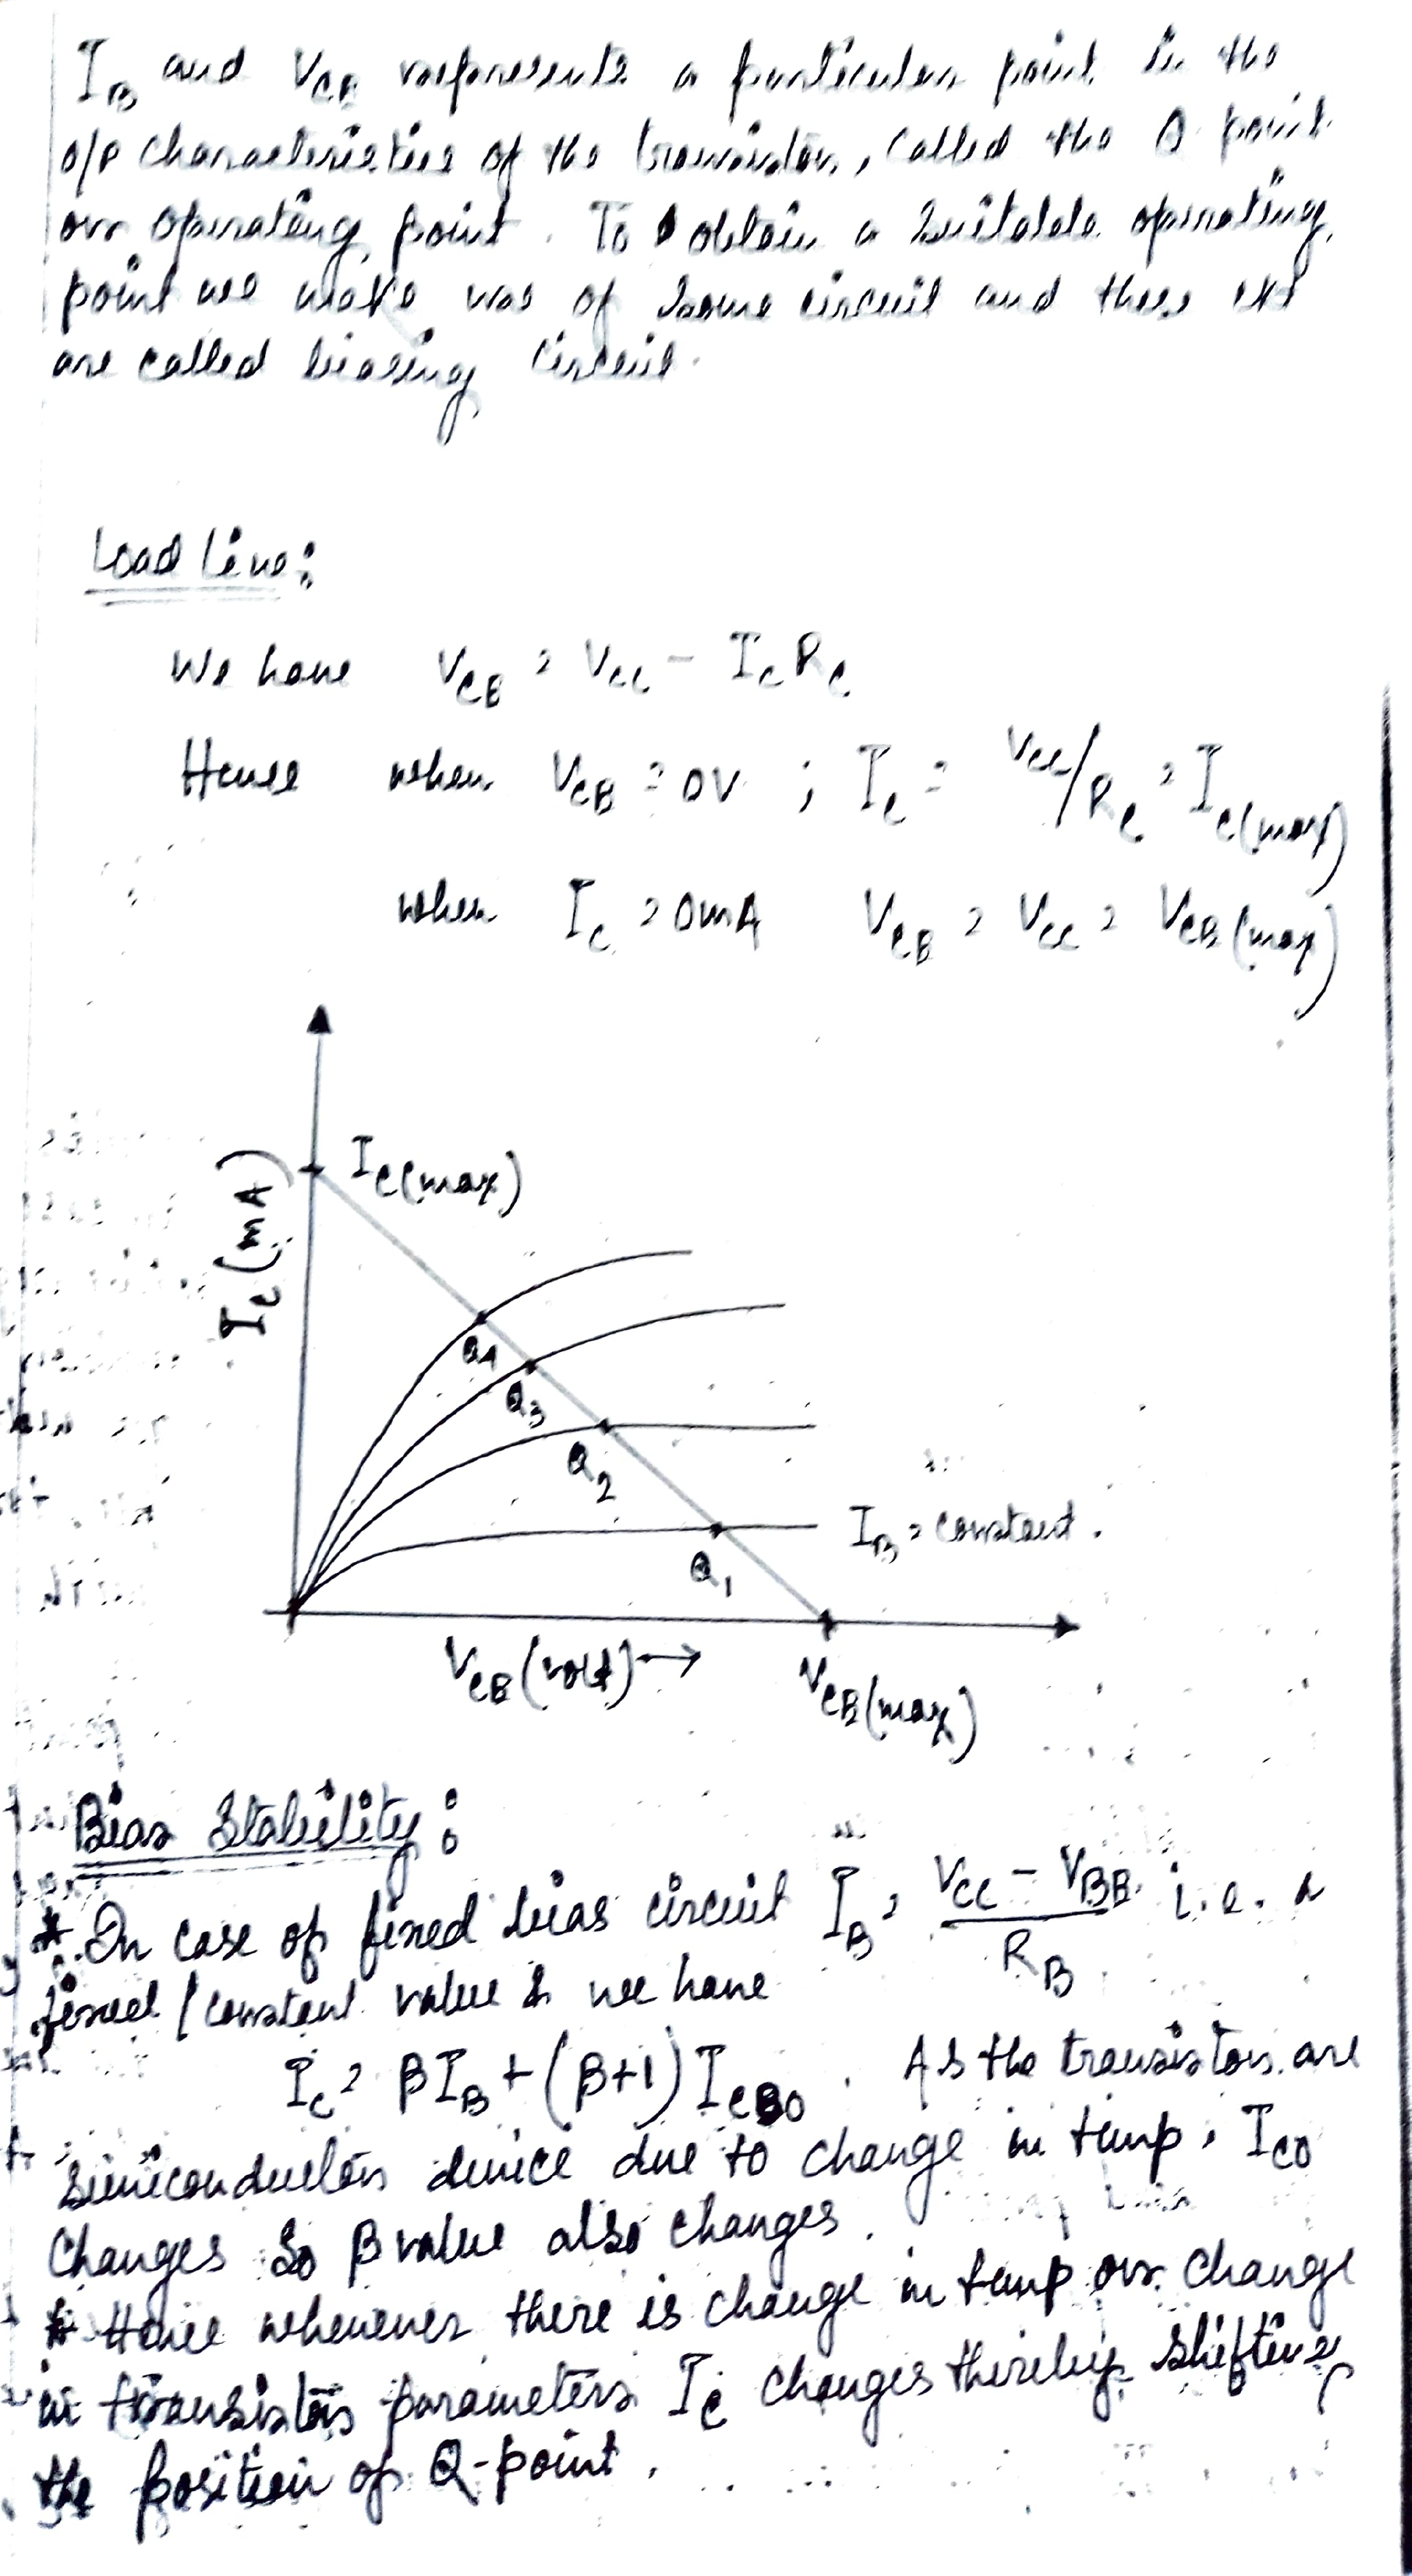 I_B and V_CE represents a particular point in the
o/p characteristics of the transistor, called the Q point
or operating point. To obtain a suitable operating
point we make use of some circuit and these ckt
are called biasing circuit.
Load Line:
We have V_CE = V_CC - I_C R_C
Hence when V_CE = 0V ; I_C = V_CC/R_C = I_C(max)
when I_C = 0mA V_CE = V_CC = V_CE(max)
I_C(max)
I_C (mA)
Q4
Q3
Q2
I_B = constant.
Q1
V_CE (volt) →
V_CE(max)
Bias Stability:
* In case of fixed bias circuit I_B = (V_CC - V_BE)/R_B i.e. a
fixed / constant value & we have
I_C = βI_B + (β+1) I_CBO . As the transistors are
semiconductor device due to change in temp, I_CO
changes so β value also changes.
* Hence whenever there is change in temp or change
in transistor parameters I_C changes thereby shifting
the position of Q-point.